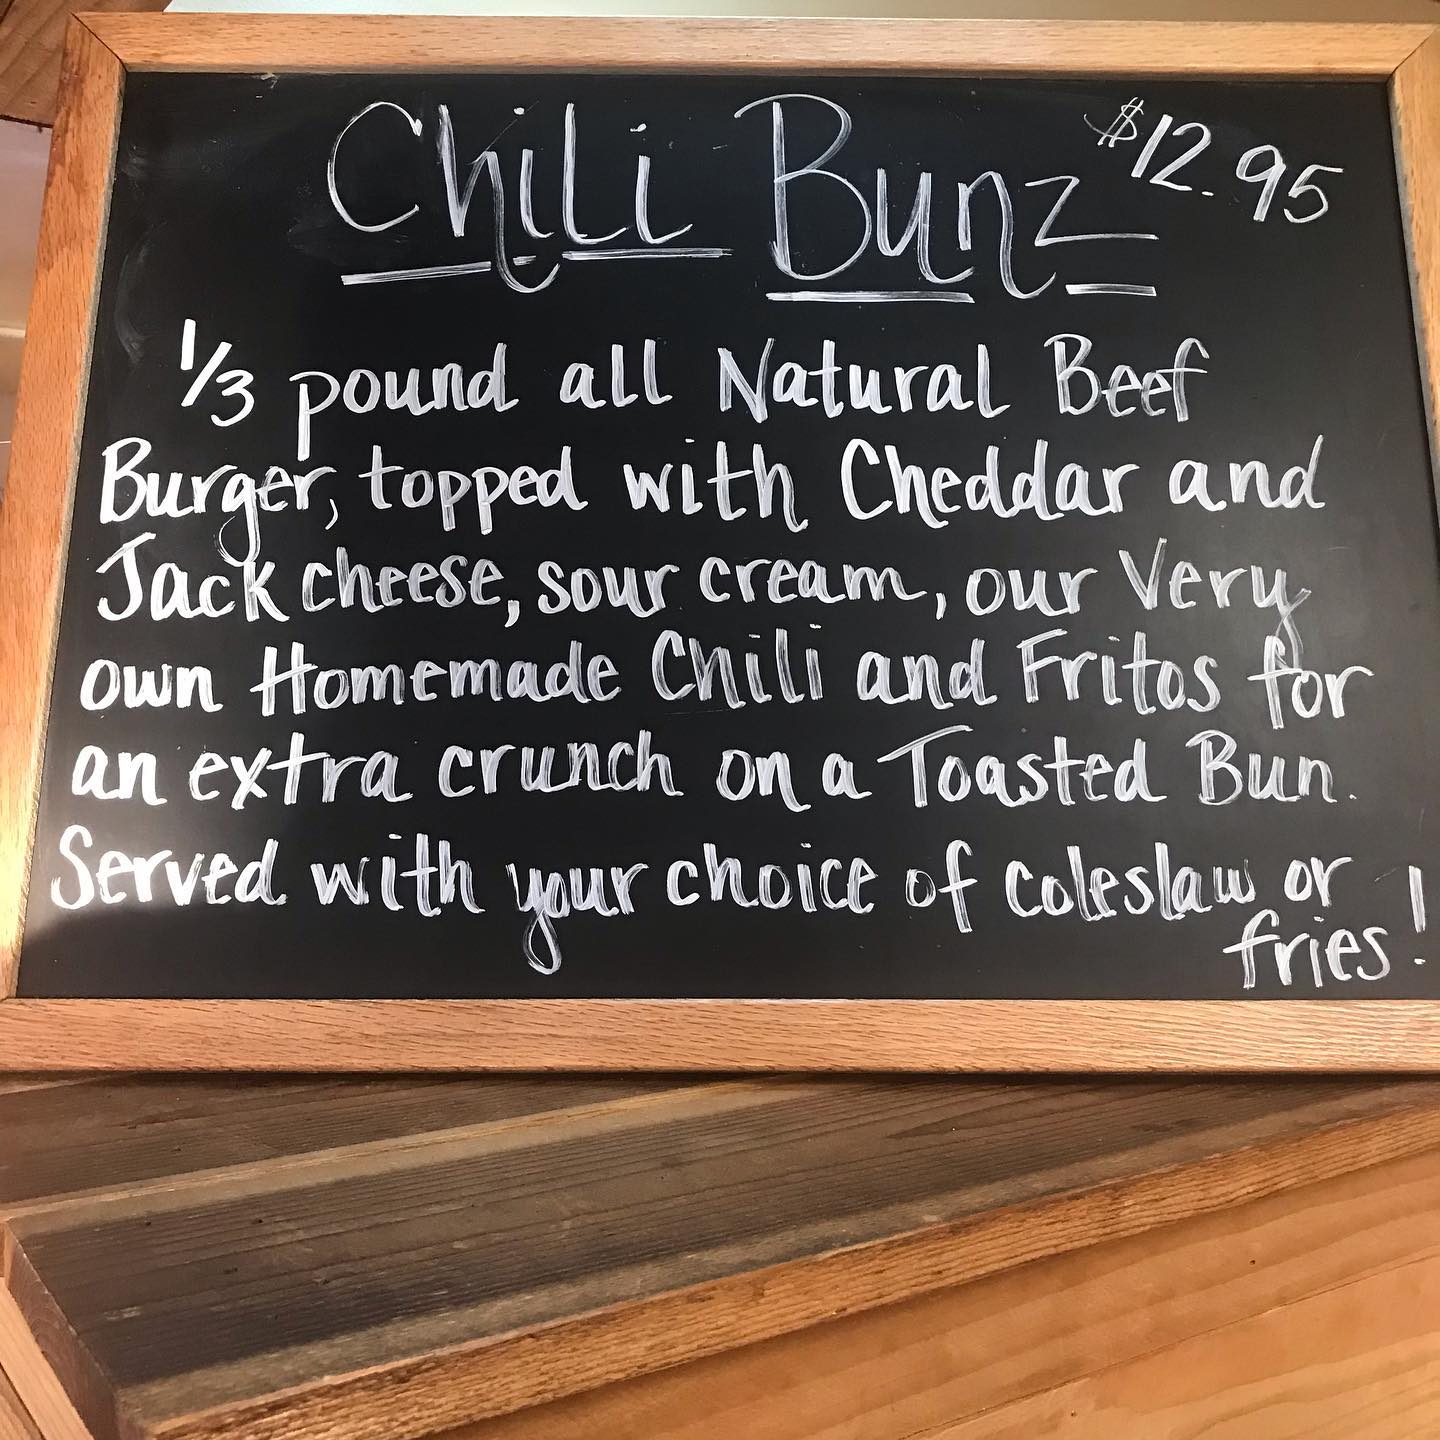 Chili Bunz $12.95
1/3 pound all Natural Beef
Burger, topped with Cheddar and
Jack cheese, sour cream, our Very
own Homemade Chili and Fritos for
an extra crunch on a Toasted Bun.
Served with your choice of coleslaw or
fries!